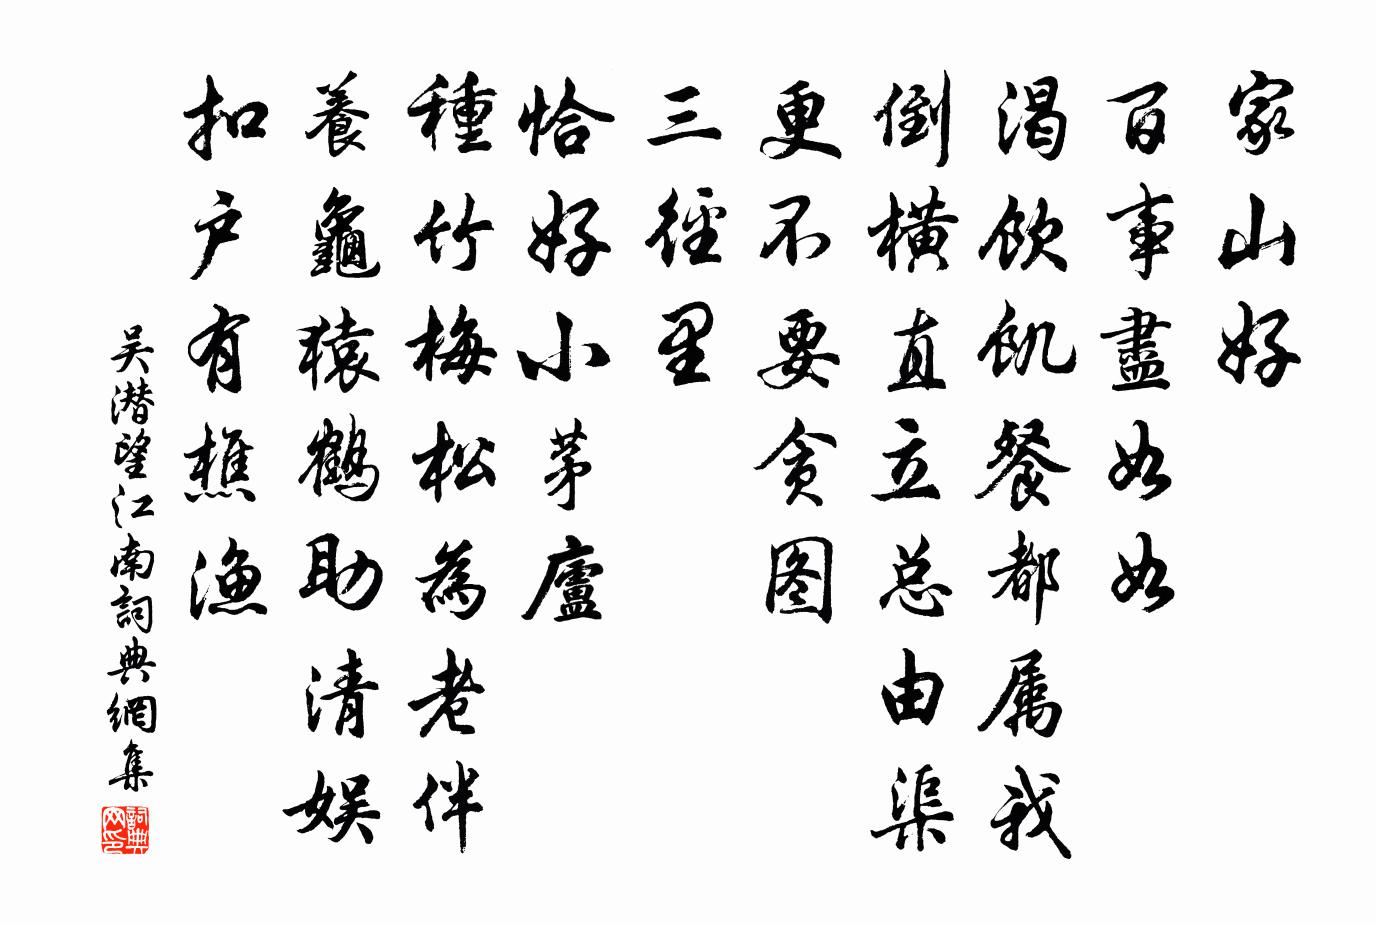 家山好
百事盡如如
渴飲飢餐都属我
倒橫直立总由渠
更不要贪图
三徑里
恰好小茅廬
種竹梅松為老伴
養龜猿鶴助清娱
扣户有樵漁
吴潜望江南詞典網集
詞典
网印